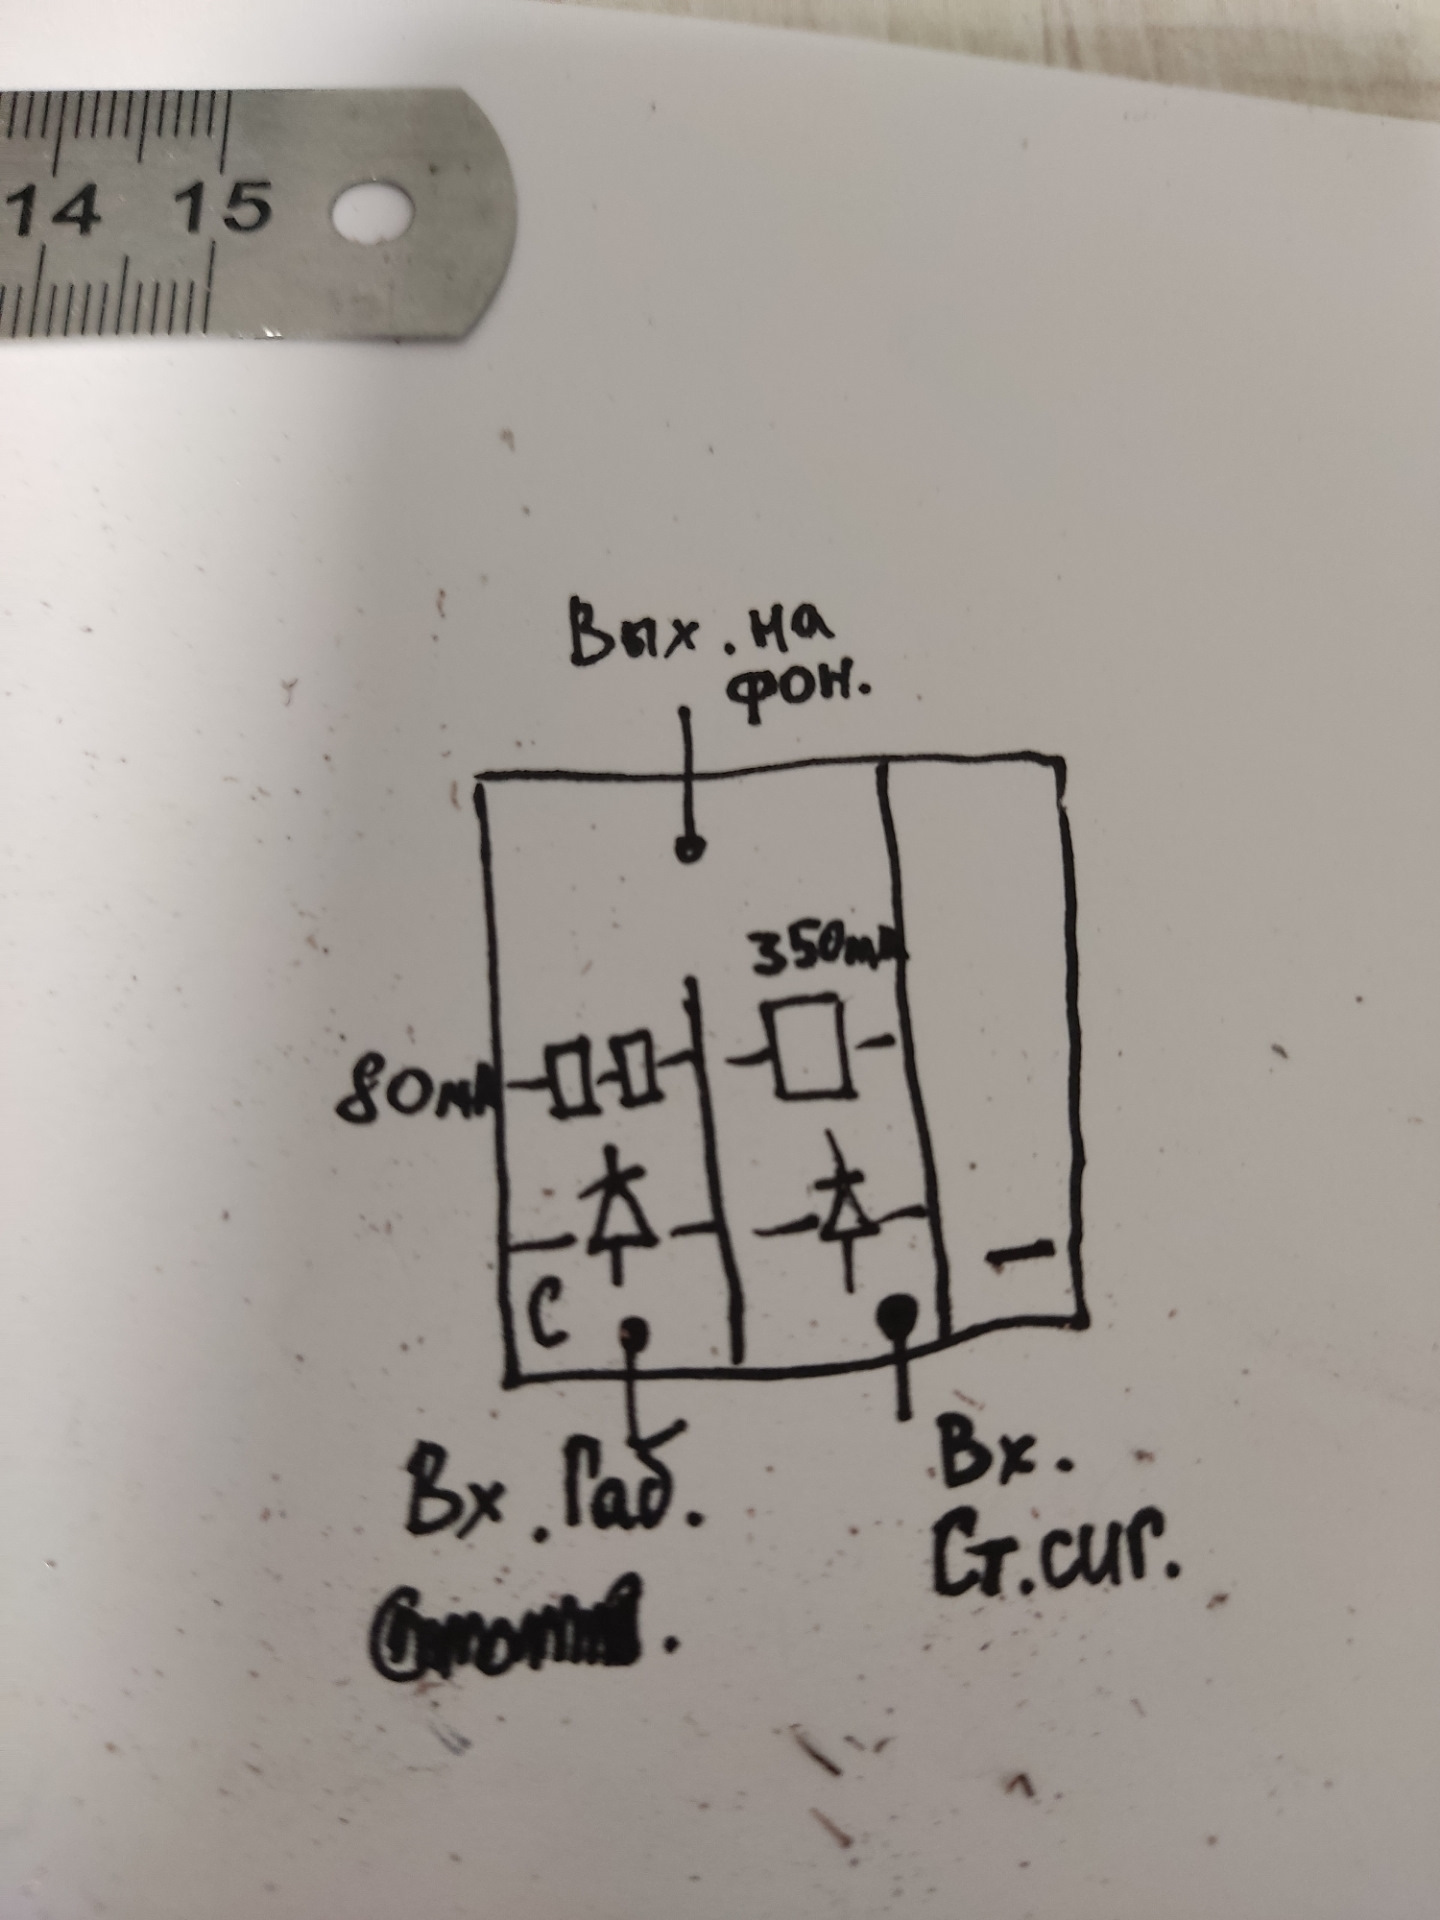 14 15
Вых. на
фон.
350mA
80мА
С
Вх. Габ.
Вх.
Ст. сиг.